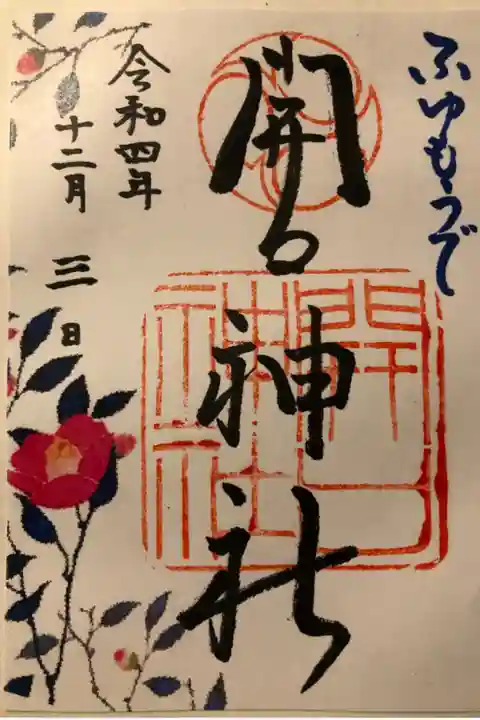 ふゆもうで
開口神社
令和四年
十二月 三 日
開口神社